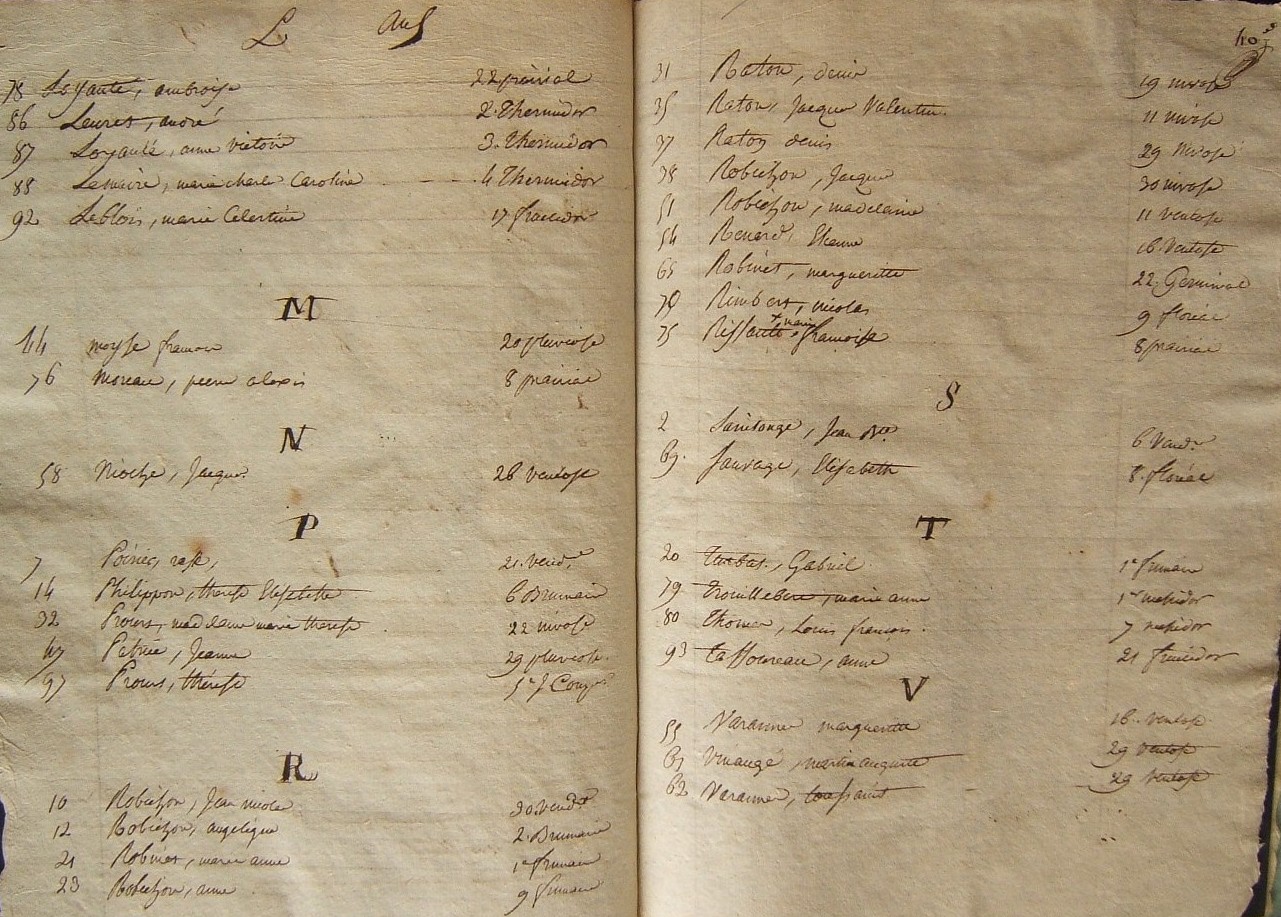 L
78 Loyauté, ambroise 22 prairial
86 Leuret, andré 2. Thermidor
87 Loyauté, anne victoire 3. Thermidor
88 Lemaire, marie charle Caroline 4 Thermidor
92 Leblois, marie Celestine 17 fructidor
M
44 moysse francois 20 pluviose
76 Moreau, pierre alexis 8 prairial
N
58 Niochze, Jacques 26 ventose
P
7 Poirier, rose, 21. vend.re
14 Philippon, therese Elisabette 6 Brumaire
32 Prous, madelaine marie therese 22 nivose
47 Patrice, Jeanne 29 pluviose.
97 Prous, thérese 5e J Comp.re
R
10 Robichon, Jean nicolas 30. vend.re
12 Robichon, angelique 2. Brumaire
21 Robinet, marie anne 1er frimaire
23 Robichon, anne 9 frimaire
40
31 Raton, denis 19 nivose
35 Raton, Jacque Valentin. 11 nivose
37 Raton denis 29 Nivose
38 Robichon, Jacque 30 nivose
51 Robichon, madelaine 11 ventose
54 Renard, Etienne 16. Ventose
65 Robinet, margueritte 22. Germinal
70 Rimbert, nicolas 9 floréal
75 marie francoise 8 prairial
S
2 Saintonge, Jean Bte. 6 Vend.re
69. Sauvage, Elisabeth 8. floréal
T
20 Gabriel 1er frimaire
79 marie anne 1er messidor
80 Thomer, Louis francois. 7 messidor
93 taffoureau, anne 21 fructidor
V
55 Varanne margueritte 16. ventose
61 Vinaugé, martin auguste 29 ventose
62 Varanne, toussaint 29 ventose